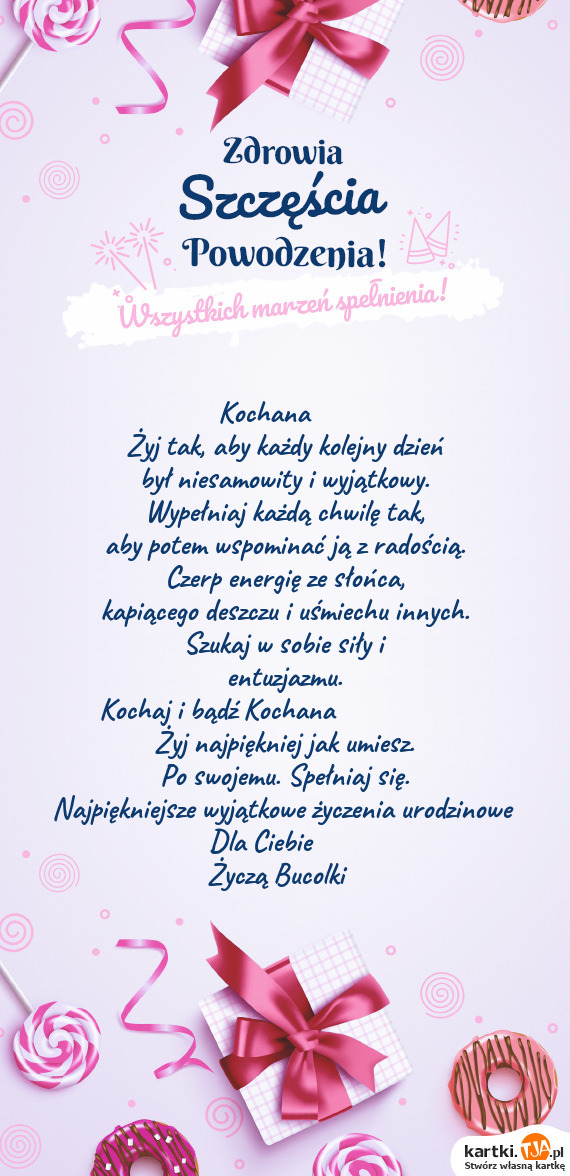 Zdrowia
Szczęścia
Powodzenia!
Wszystkich marzeń spełnienia!
Kochana
Żyj tak, aby każdy kolejny dzień
był niesamowity i wyjątkowy.
Wypełniaj każdą chwilę tak,
aby potem wspominać ją z radością.
Czerp energię ze słońca,
kapiącego deszczu i uśmiechu innych.
Szukaj w sobie siły i
entuzjazmu.
Kochaj i bądź Kochana
Żyj najpiękniej jak umiesz.
Po swojemu. Spełniaj się.
Najpiękniejsze wyjątkowe życzenia urodzinowe
Dla Ciebie
Życzą Bucolki
kartki.TJA.pl
Stwórz własną kartkę